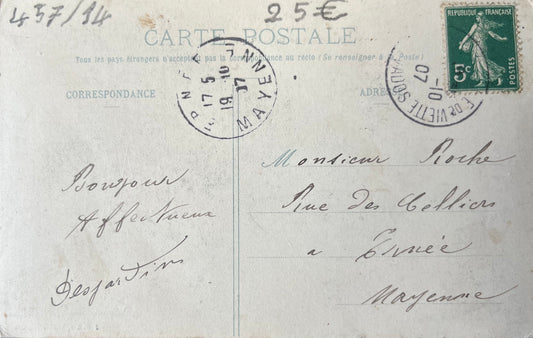 457/14
25€
CARTE POSTALE
Tous les pays étrangers n'acceptent pas la correspondance au recto (Se renseigner à la Poste)
CORRESPONDANCE
ADRES
RÉPUBLIQUE FRANÇAISE
5c
POSTES
17 5
19 -10
07
MAYENNE
-10
07
Bonjour
Affectueux
Desjardins
Monsieur Roche
Rue des Celliers
a Ernée
Mayenne